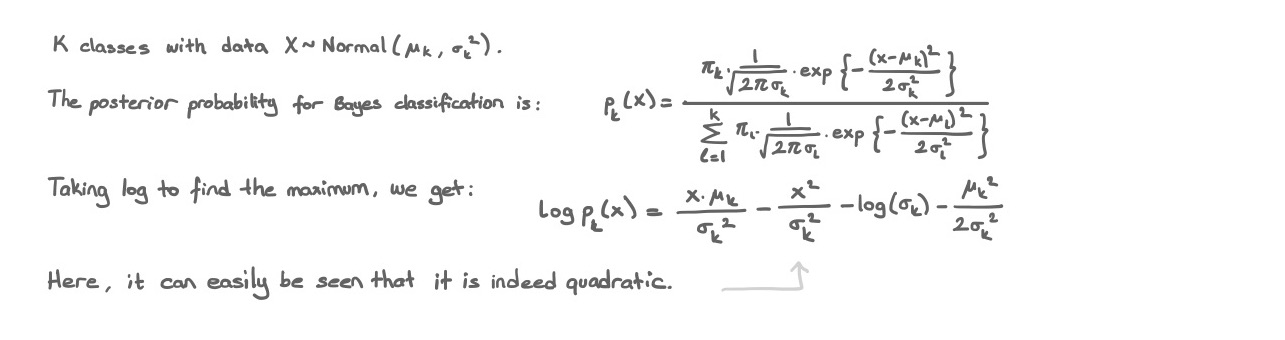 K classes with data X ~ Normal(μₖ, σₖ²).
The posterior probability for Bayes classification is: pₖ(x) = \frac{πₖ · \frac{1}{\sqrt{2πσₖ}} · exp {-\frac{(x-μₖ)²}{2σₖ²}}}{\sum_{l=1}^{K} πₗ · \frac{1}{\sqrt{2πσₗ}} · exp {-\frac{(x-μₗ)²}{2σₗ²}}}
Taking log to find the maximum, we get: log pₖ(x) = \frac{x·μₖ}{σₖ²} - \frac{x²}{σₖ²} - log(σₖ) - \frac{μₖ²}{2σₖ²}
Here, it can easily be seen that it is indeed quadratic.